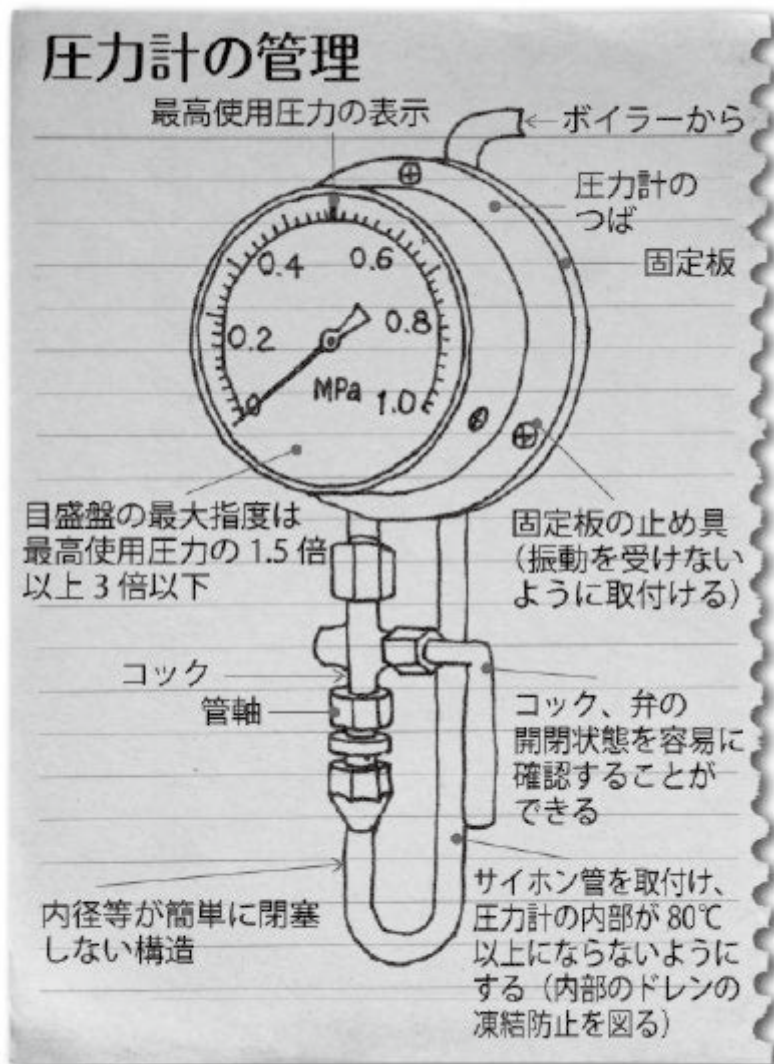 圧力計の管理
最高使用圧力の表示
ボイラーから
圧力計の
つば
固定板
0.4
0.6
0.2
0.8
0
MPa
1.0
目盛盤の最大指度は
最高使用圧力の1.5倍
以上3倍以下
固定板の止め具
(振動を受けない
ように取付ける)
コック
管軸
コック、弁の
開閉状態を容易に
確認することが
できる
内径等が簡単に閉塞
しない構造
サイホン管を取付け、
圧力計の内部が80℃
以上にならないように
する(内部のドレンの
凍結防止を図る)